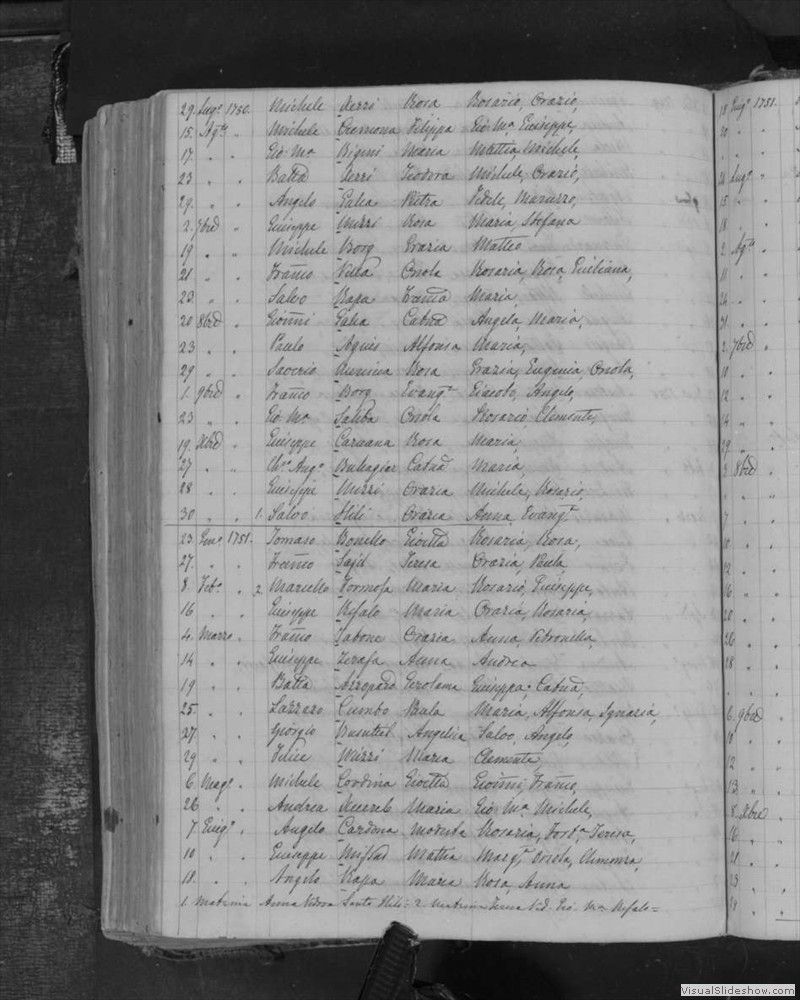 29. Lug.º 1750. Michele Xerri Rosa Rosario, Orazio,
15. Ag.to " Michele Cremona Filippa Gio: M.a Giuseppe,
17. " " Gio: M.a Bigeni Maria Mattia, Michele,
23 " " Batta Xerri Teodora Michele, Orazio,
29. " " Angelo Galea Pietra Fedele, Maruzzo,
2. 7bre " Giuseppe Mizzi Rosa Maria, Stefana
19 " " Michele Borg Grazia Matteo
21 " " Franco Villa Orsola Rosaria, Rosa, Giuliana,
23 " " Salvo Rapa Franca Maria,
20 8bre " Gionni Galea Catna Angela, Maria,
23 " " Paulo Agius Alfonsa Maria,
29 " " Saverio Rosa Grazia, Eugenia, Orsola,
1. 9bre " Franco Borg Evang.ta Giacobo, Angelo,
23 " " Gio: M.a Saliba Orsola Rosario, Clemente,
19. Xbre " Giuseppe Caruana Rosa Maria,
27 " " Ang.o Buhagiar Catna Maria,
28 " " Giuseppe Mizzi Grazia Michele, Rosario,
30 " " 1. Salvo Hili Grazia Anna, Evang.ta
23. Gen.o 1751. Tomaso Bonello Gioetta Rosaria, Rosa,
27. " " Franco Sajd Teresa Grazia, Paula,
8. Feb.o " 2 Marcello Formosa Maria Rosario, Giuseppe,
16 " " Giuseppe Refalo Maria Grazia, Rosaria,
4. Marzo " Franco Tabone Grazia Anna, Petronella,
14 " " Giuseppe Zerafa Anna Andrea
19 " " Batta Azzopard Gerolama Giuseppa, Catna,
25 " " Lazzaro Cumbo Paula Maria, Alfonsa, Ignazia,
27 " " Giorgio Busuttil Angelia Salvo, Angelo,
29 " " Felice Mizzi Maria Clemente
6. Mag.o " Michele Cordina Gioetta Gionni, Franco,
26 " " Andrea Xuereb Maria Gio: M.a Michele,
7 Giug.o " Angelo Cardona Modesta Rosaria, Teresa,
10 " " Giuseppe Mifsud Mattia Marg.ta Orsola,
18. " " Angelo Rapa Maria Rosa, Anna
1. Matrina Anna Vedova Santo Hili = 2. Matrina Ved. Gio: M.a Refalo =
18 Giug.o 1751.
20 " "
" "
26 Lug.o "
15 " "
18 " "
2. Ag.to "
11 " "
24 " "
31 " "
2. 7bre "
10 " "
12 " "
14 " "
29 " "
3 8bre "
" "
7 " "
10 " "
12 " "
16 " "
20 " "
26 " "
28 " "
" "
6. 9bre "
10 " "
12 " "
13 " "
8 Xbre "
16 " "
21 " "
23 " "
29 " "
VisualSlideshow.com